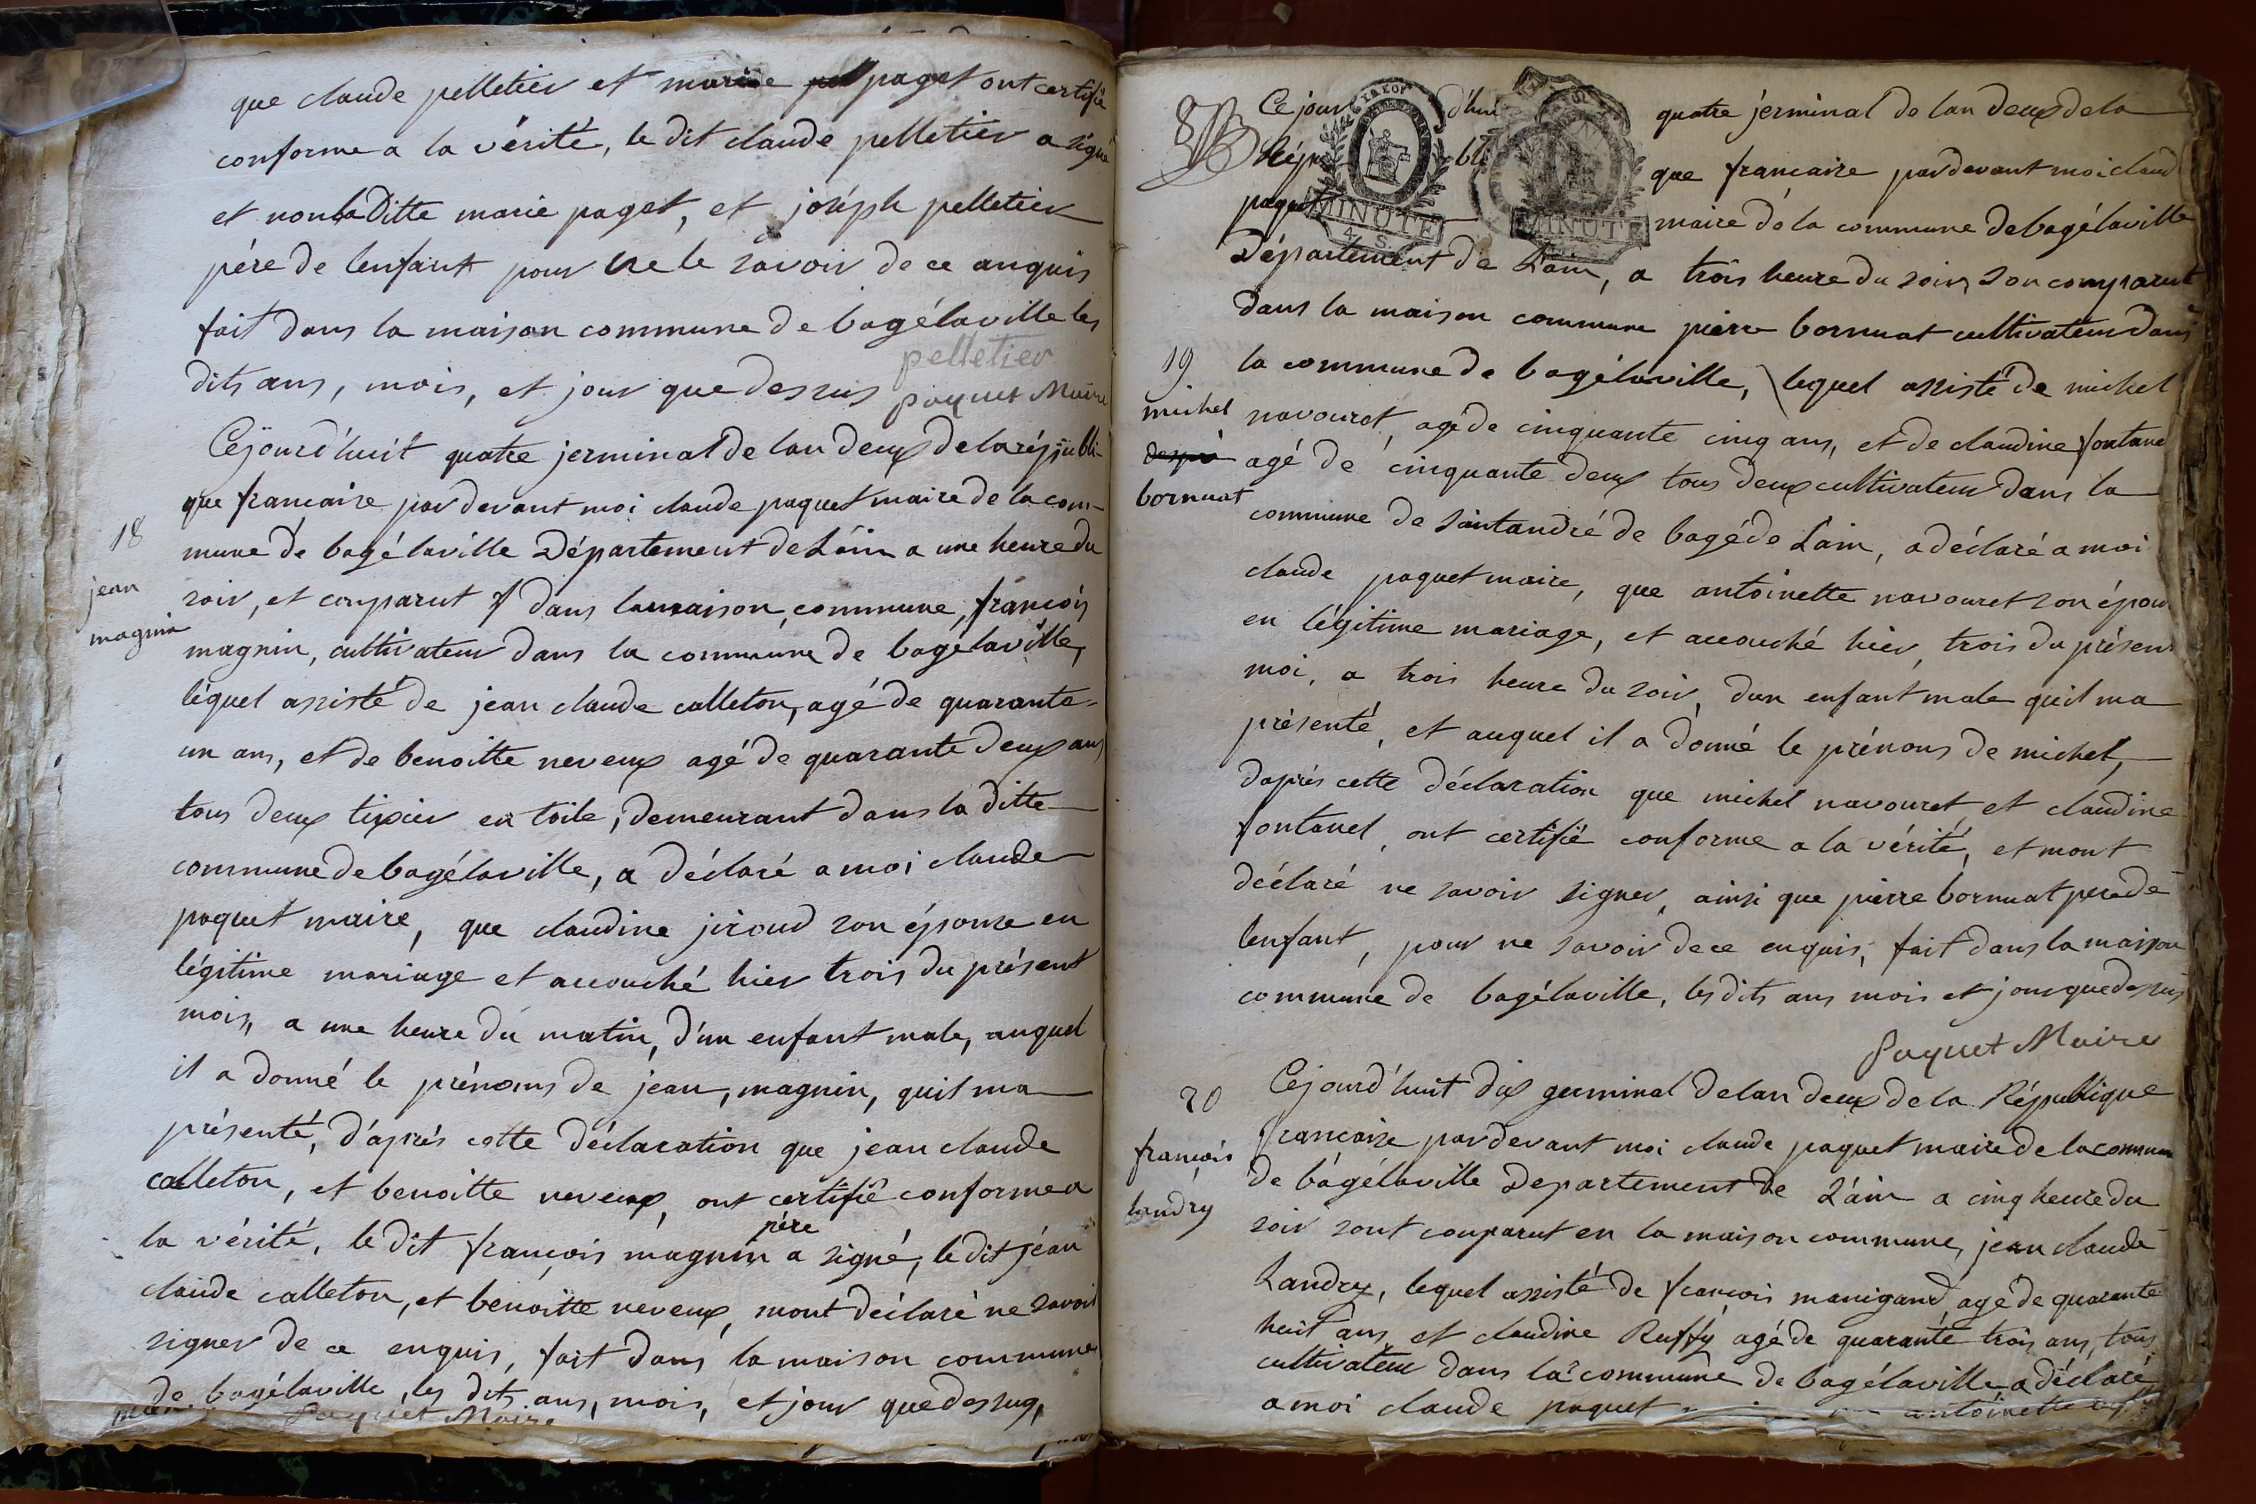 que claude pelletier et marie paget ont certifié
conforme a la vérité, le dit claude pelletier a signé
et non la ditte marie paget, et joséph pelletier
pére de lenfant pour ne le savoir de ce anquis
fait dans la maison commune de bagélaville les
dits ans, mois, et jour que dessus
pelletier
paquet Maire
18
jean
magnin
Cejourd'huit quatre jerminal de lan deux de la républi-
que francaise par devant moi claude paquet maire de la com-
mune de bagélaville Département de Lain a une heure du
soir, et comparut dans la maison commune, francois
magnin, cultivateur dans la commune de bagélaville,
léquel assisté de jean claude calleton, agé de quarante-
un ans, et de benoitte neveux agé de quarante deux ans
tous deux tixier en toile, demeurant dans la ditte
commune de bagélaville, a déclaré a moi claude
paquet maire, que claudine jiroud son épouse en
légitime mariage et accouché hier trois du présent
mois, a une heure du matin, d'un enfant male, auquel
il a donné le prénoms de jean, magnin, quil ma
présenté, d'aprés cette déclaration que jean claude
calleton, et benoitte neveux, ont certifié conforme a
la vérité, le dit francois magnin père a signé, le dit jéan
claude calleton, et benoitte neveux, mont déclaré ne savoir
signer de ce enquis, fait dans la maison commune
de bagélaville, les dits ans, mois, et jour que dessus,
Paquet Maire
Ce jour d'hui quatre jerminal de lan deux de la
Républi que francaise pardevant moi claud
paquet maire de la commune de bagélaville
LA LOI
LA LOI
MINUTE
4 S.
MINUTE
Département de Lain, a trois heure du soir, son comparut
dans la maison commune piérre bornuat cultivateur dans
19
michel
bornuat
la commune de bagélaville, lequel assisté de michel
navouret, agé de cinquante cinq ans, et de claudine fontanel
agé de cinquante deux tous deux cultivateur dans la
commune de saintandré de bagé de Lain, a déclaré a moi
claude paquet maire, que antoinette navouret son épouse
en légitime mariage, et accouché hier, trois du présent
moi, a trois heure du soir, dun enfant male quil ma
présenté, et auquel il a donné le prénoms de michel,
daprés cette déclaration que michel navouret, et claudine
fontanel, ont certifié conforme a la vérité, et mont
déclaré ne savoir signer, ainsi que pierre bornuat pere de
lenfant, pour ne savoir de ce enquis, fait dans la maison
commune de bagélaville, les dits ans mois et jour que dessus
Paquet Maire
20
francois
landry
Cejourd'huit dix germinal de lan deux de la République
francaise pardevant moi claude paquet maire de la commune
de bagélaville Département de Lain a cinq heure du
soir sont comparut en la maison commune, jean claude
Landry, lequel assisté de francois manigand, agé de quarante
huit ans, et claudine Ruffy agé de quarante trois ans, tous
cultivateur dans la commune de bagélaville a déclaré
a moi claude paquet antoinette